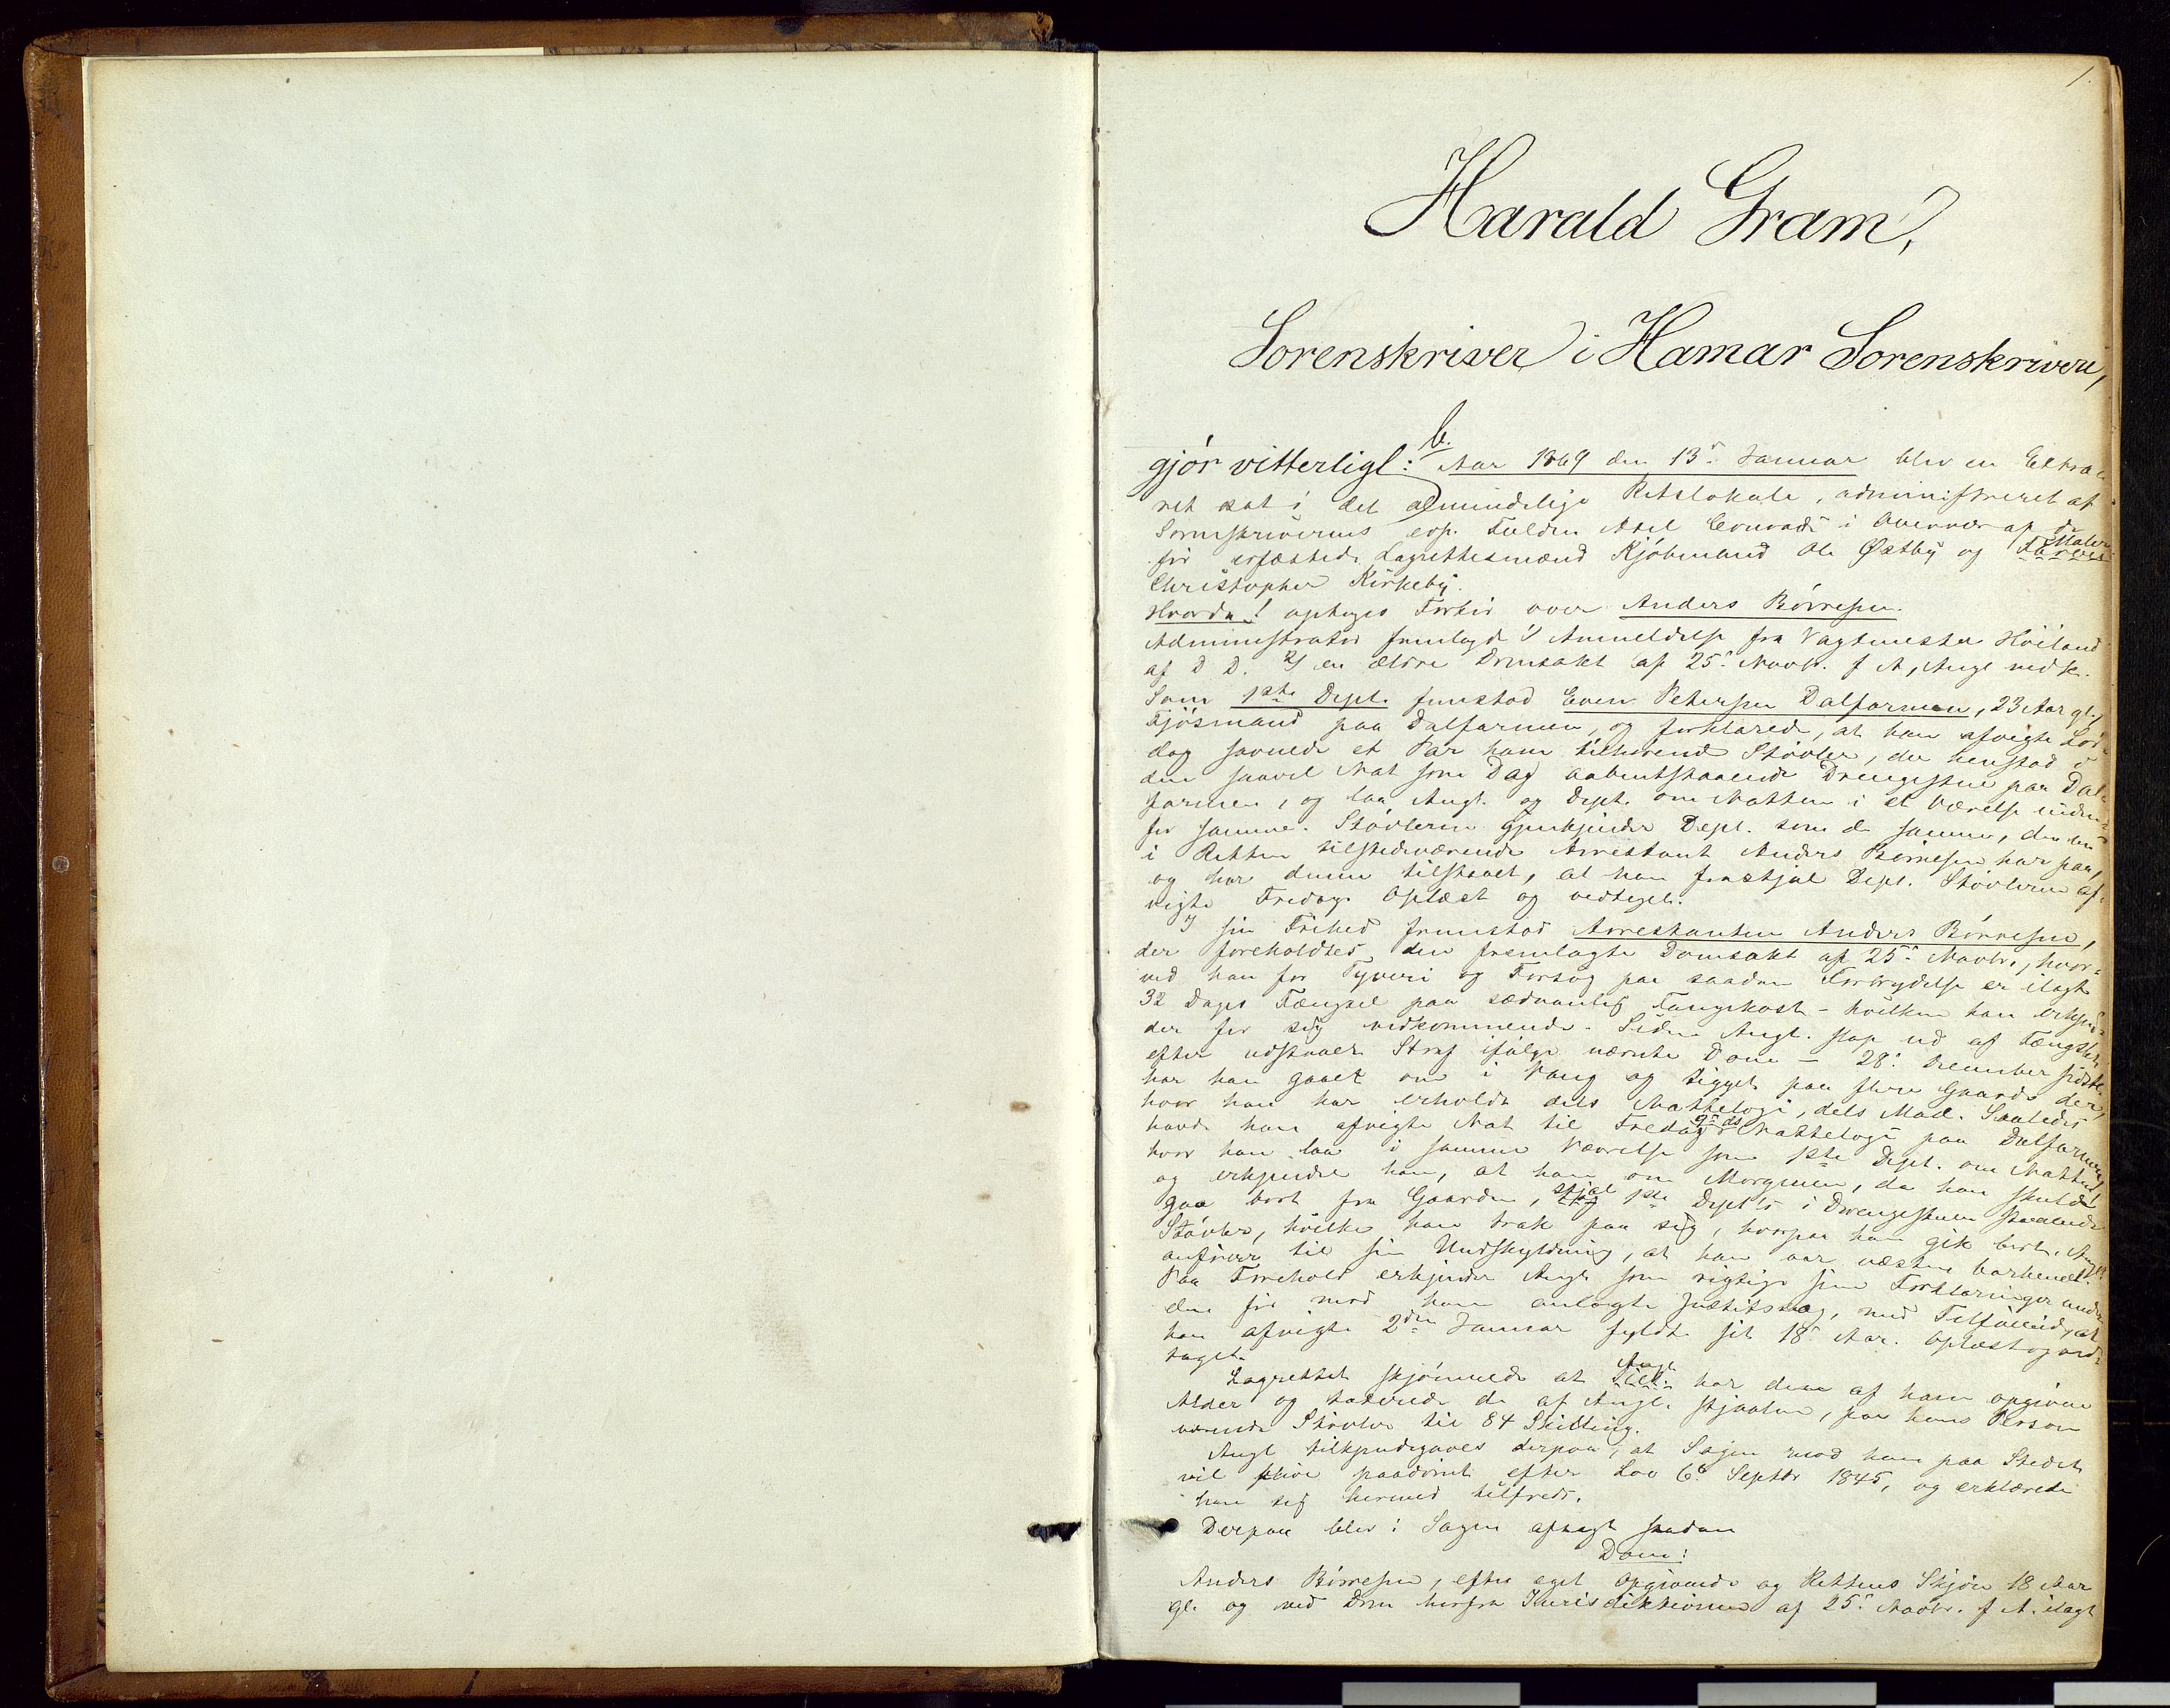 1.
Harald Gram,
Sorenskriver i Hamar Sorenskriveri,
b.
gjør vitterligt: Aar 1869 den 13de Januar blev en Extra-
ret sat i det almindelige Retslokale, administreret af
Sorenskriverens eds. Fuldm Axel Conradi i Overvær af de
Maler
før erfæstede Lagrettesmænd Kjøbmand Ole Østby og Farver
Christopher Kirkeby.
Hvorda! optoges Forhør over Anders Børresen.
Administrator fremlagde 1/ Anmeldelse fra Vagtmester Höiland
af D D. 2/ en ældre Domsakt af 25de Novbr. f A, Angl vedk.
Som 1ste Dept. fremstod Even Petersen Dalfarmen, 23 Aar gl.,
Fjøsmand paa Dalfarmen, og forklarede, at han afvigte Lør-
dag savnede et Par ham tilhørende Støvler, der henstod i
den saavel Nat som Dag aabentstaaende Drengestue paa Dal-
farmen, og laa Angl. og Dept. om Natten i et Værelse inden-
for samme. Støvlerne gjenkjender Dept. som de samme, den nu
i Retten tilstedeværende Arrestant Anders Børresen har paa,
og har denne tilstaaet, at han frastjal Dept. Støvlerne af-
vigte Fredag. Oplæst og vedtaget.
I sin Frihed fremstod Arrestanten Anders Børresen,
der foreholdtes den fremlagte Domsakt af 25de Novbr., hvor-
ved han for Tyveri og Forsøg paa saadan Forbrydelse er ilagt
32 Dages Fængsel paa sædvanlig Fangekost - hvilken han erkjen-
der for sig vedkommende. Siden Angl. slap ud af Fængslet,
efter udstaaet Straf ifølge nævnte Dom - 28de December sidstl.
har han gaaet om i Vang og tigget paa flere Gaarde der,
hvor han har erholdt dels Natteloge, dels Mad. Saaledes
havde han afvigte Nat til Fredag Natteloge paa Dalfarmen,
hvor han laa i samme Værelse som 1ste Dept. om Natten,
og erkjender han, at han om Morgenen, da han skulde
stjal
gaa bort fra Gaarden, tog 1ste Dept's i Drengestuen staaende
Støvler, hvilke han trak paa sig, hvorpaa han gik bort. Angl.
anfører til sin Undskyldning, at han var næsten barbenet.
Paa Forehold erkjender Angl som rigtige sine Forklaringer under
den før mod ham anlagte Justitssag, med Tilføiende, at
han afvigte 2den Januar fyldte sit 18de Aar. Oplæst og ved-
taget.
Angl.
Lagrettet skjønnede at har den af ham opgivne
Alder og taxerede de af Angl. stjaalne, paa hans Person
værende Støvler til 84 Skilling.
Angl tilkjendegaves derpaa, at Sagen mod ham paa Stedet
vil blive paadømt efter Lov 6te Septbr 1845, og erklærede
han sig hermed tilfreds.
Derpaa blev i Sagen afsagt saadan
Dom:
Anders Børresen, efter eget Opgivende og Rettens Skjøn 18 Aar
gl. og ved Dom herfra Jurisdiktionen af 25de Novbr. f A. ilagt